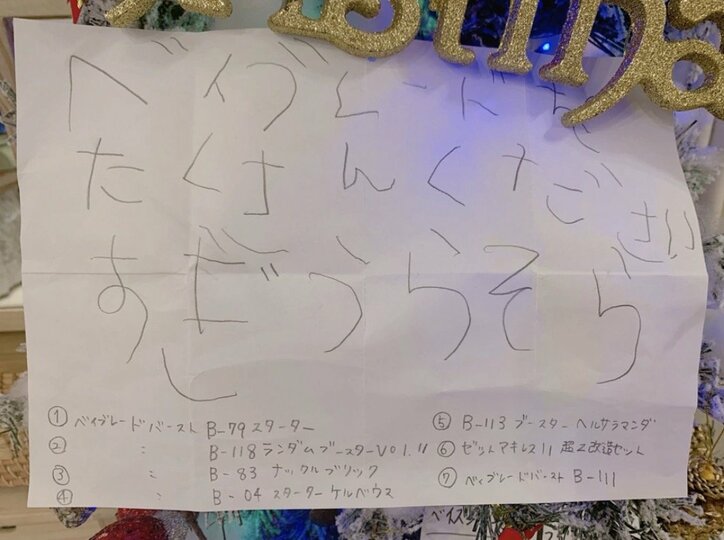 べイブレードを
たくさんください
すぎうらそら
① ベイブレードバースト B-79 スターター
② 〃 B-118 ランダムブースターVol.11
③ 〃 B-83 ナックルブリック
④ 〃 B-04 スターターケルベウス
⑤ B-113 ブースター ヘルサラマンダ
⑥ ゼットアキレス11 超Z改造セット
⑦ ベイブレードバースト B-111